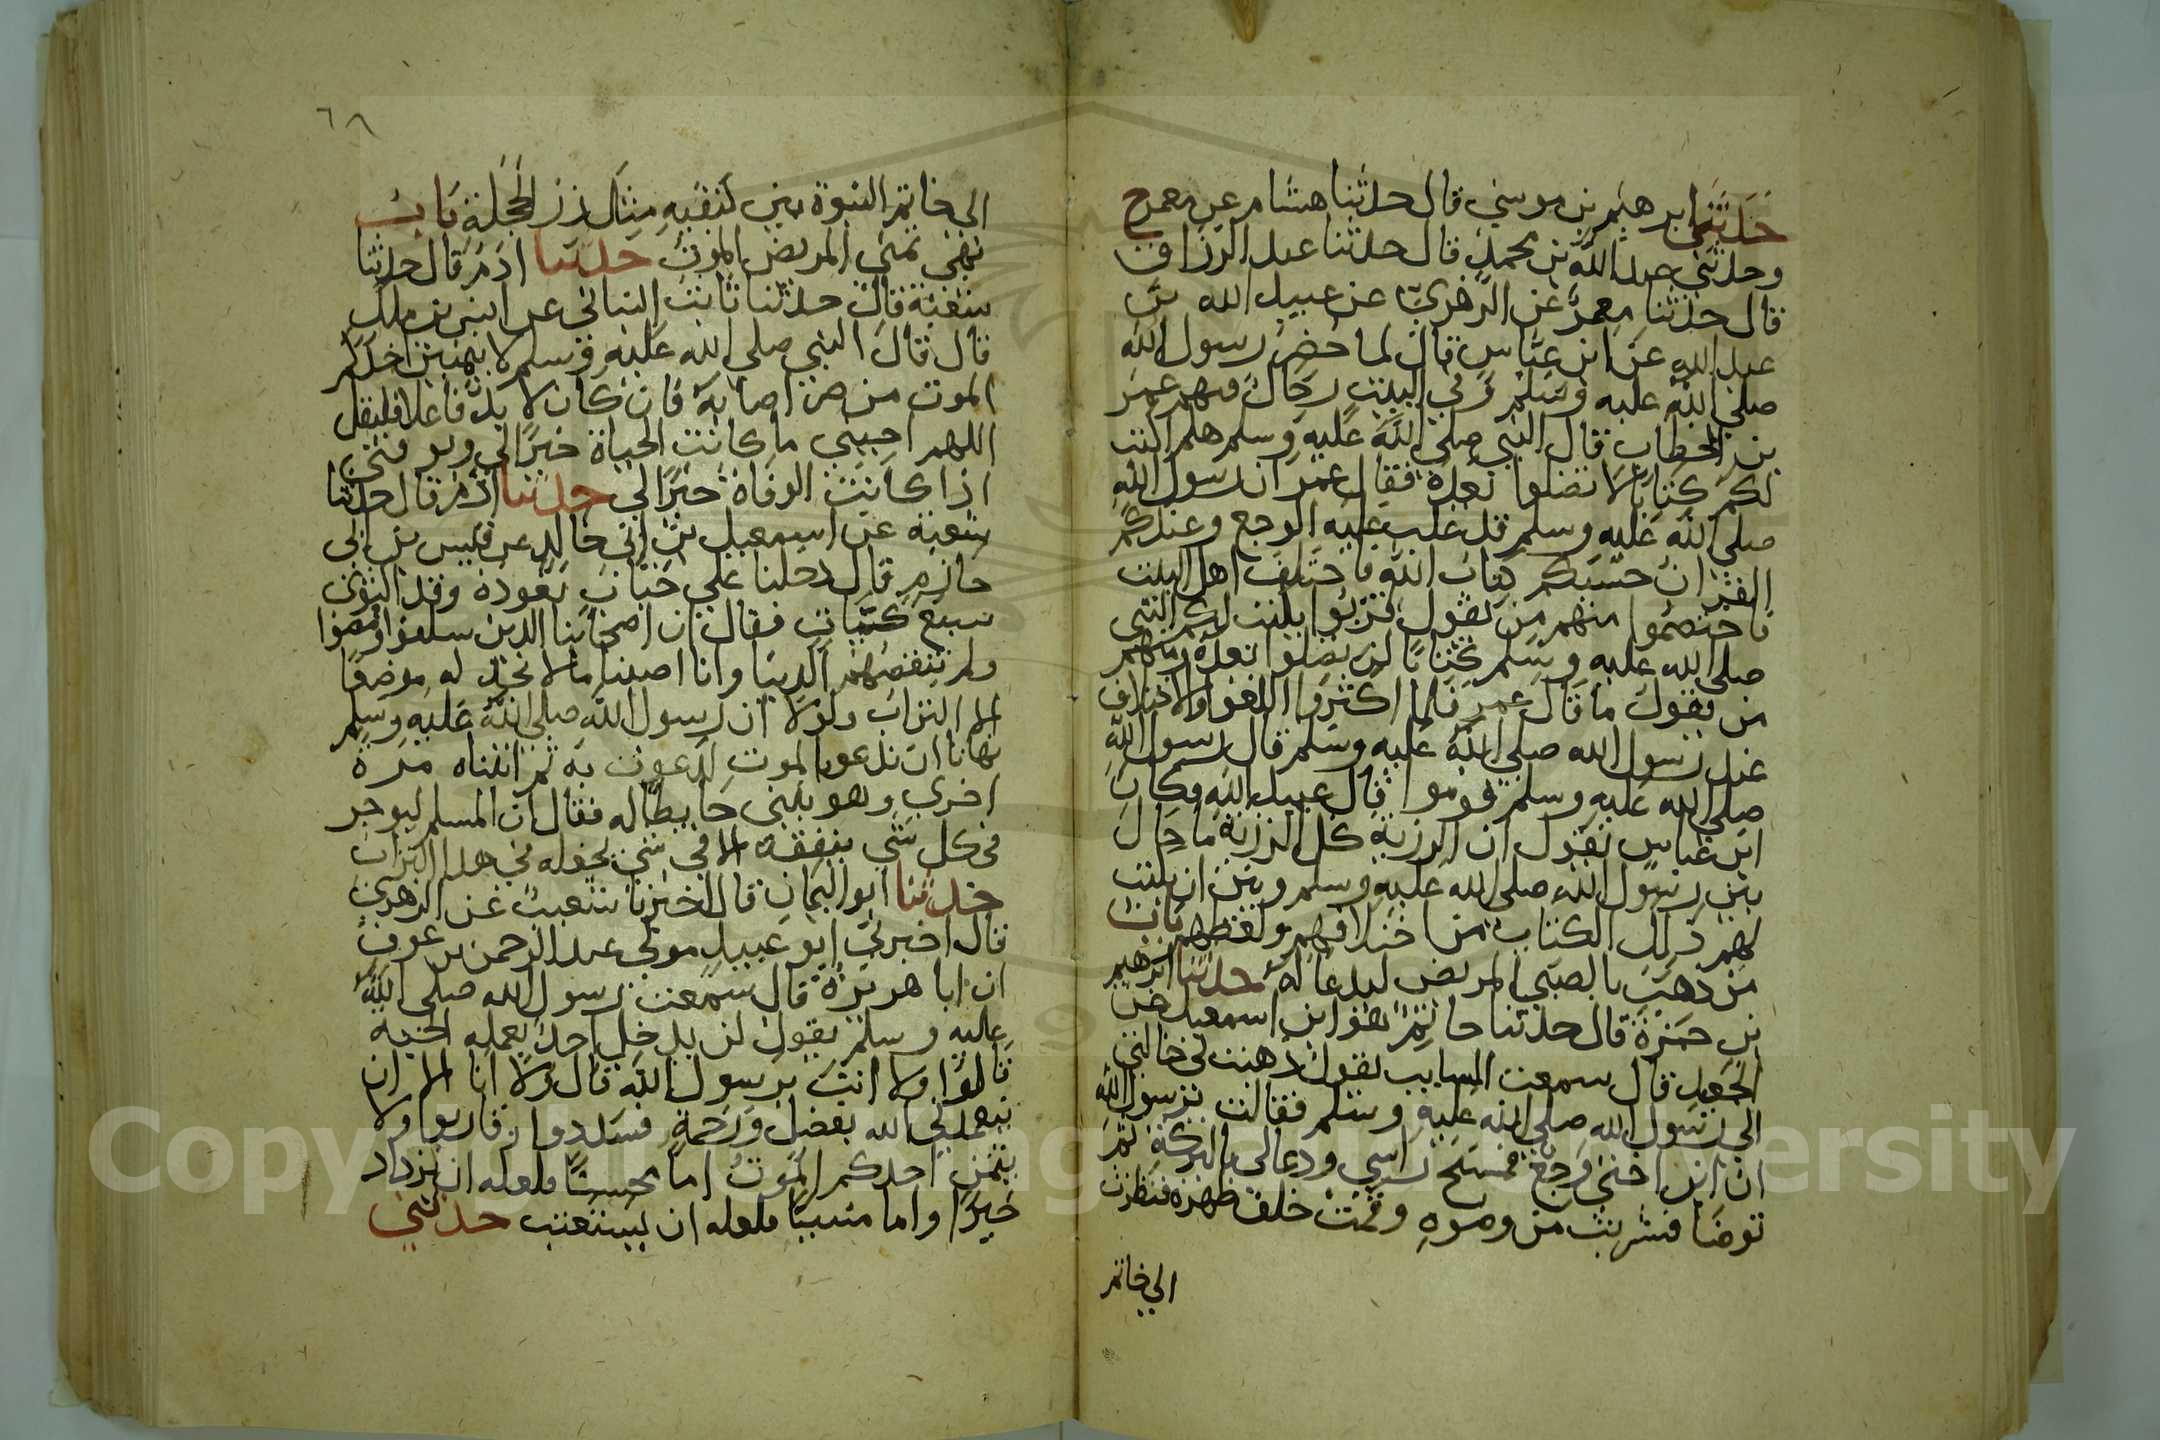 حَدَّثَنِي ابرهيم بن موسي قال حدثنا هشام عن معمر ح
وحدثني عبد الله بن محمد قال حدثنا عبد الرزاق
قال حدثنا معمر عن الزهري عن عبيد الله بن
عبد الله عن ابن عباس قال لما حضر رسول الله
صلي الله عليه وسلم وفي البيت رجال فيهم عمر
بن الخطاب قال النبي صلي الله عليه وسلم هلم اكتب
لكم كتابا لا تضلوا بعده فقال عمر ان رسول الله
صلي الله عليه وسلم قد غلب عليه الوجع وعندكم
القران حسبكم كتاب الله فاختلف اهل البيت
فاختصموا منهم من يقول قربوا يكتب لكم النبي
صلي الله عليه وسلم كتابا لن تضلوا بعده ومنهم
من يقول ما قال عمر فلما اكثروا اللغو والاختلاف
عند رسول الله صلي الله عليه وسلم قال رسول الله
صلي الله عليه وسلم قوموا قال عبيد الله فكان
ابن عباس يقول ان الرزية كل الرزية ما حال
بين رسول الله صلي الله عليه وسلم وبين ان يكتب
لهم ذلك الكتاب من اختلافهم ولغطهم باب
من ذهب بالصبي المريض ليدعا له حدثنا ابرهيم
بن حمزة قال حدثنا حاتم هو ابن اسمعيل عن
الجعيد قال سمعت السايب يقول ذهبت بي خالتي
الي رسول الله صلي الله عليه وسلم فقالت يرسول الله
ان ابن اختي وجع فمسح راسي ودعا لي بالبركة ثم
توضا فشربت من وضوه وقمت خلف ظهره فنظرت
الي خاتم
٦٨
الي خاتم النبوة بين كتفيه مثل زر الحجلة باب
نهي تمني المريض الموت حدثنا ادم قال حدثنا
شعبة قال حدثنا ثابت البناني عن انس بن ملك
قال قال النبي صلي الله عليه وسلم لا يتمنين احدكم
الموت من ضر اصابه فان كان لا بد فاعلا فليقل
اللهم احييني ما كانت الحياة خيرا لي وتوفني
اذا كانت الوفاة خيرا لي حدثنا ادم قال حدثنا
شعبة عن اسمعيل بن ابي خالد عن قيس بن ابي
حازم قال دخلنا علي خباب نعوده وقد اكتوى
سبع كيات فقال ان اصحابنا الذين سلفوا ومضوا
ولم تنقصهم الدنيا وانا اصبنا ما لا نجد له موضعا
الا التراب ولولا ان رسول الله صلي الله عليه وسلم
نهانا ان ندعو بالموت لدعوت به ثم اتيناه مرة
اخري وهو يبني حايطا له فقال ان المسلم ليوجر
في كل شي ينفقه الا في شي يجعله في هذا التراب
حدثنا ابو اليمان قال اخبرنا شعيب عن الزهري
قال اخبرني ابو عبيد مولي عبد الرحمن بن عوف
ان ابا هريرة قال سمعت رسول الله صلي الله
عليه وسلم يقول لن يدخل احد بعمله الجنة
قالوا ولا انت يرسول الله قال ولا انا الا ان
يتغمدني الله بفضل ورحمة فسددوا وقاربوا ولا
يتمن احدكم الموت اما محسنا فلعله ان يزداد
خيرا واما مسيا فلعله ان يستعتب حدثني